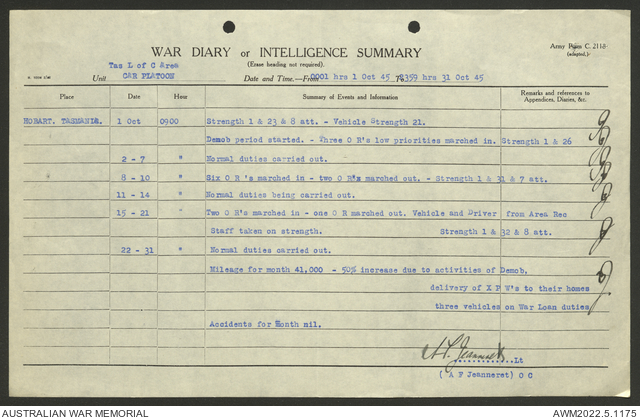 WAR DIARY or INTELLIGENCE SUMMARY
Army Form C. 2118
(adapted.)
(Erase heading not required).
Tas L of C Area
Unit CAR PLATOON
Date and Time.—From 0001 hrs 1 Oct 45 To 2359 hrs 31 Oct 45
Place Date Hour Summary of Events and Information Remarks and references to Appendices, Diaries, &c.
HOBART, TASMANIA. 1 Oct 0900 Strength 1 & 23 & 8 att. - Vehicle Strength 21.
Demob period started. - Three O R's low priorities marched in. Strength 1 & 26
2 - 7 " Normal duties carried out.
8 - 10 " Six O R 's marched in - two O R's marched out. - Strength 1 & 31 & 7 att.
11 - 14 " Normal duties being carried out.
15 - 21 " Two O R's marched in - one O R marched out. Vehicle and Driver from Area Rec
Staff taken on strength. Strength 1 & 32 & 8 att.
22 - 31 " Normal duties carried out.
Mileage for month 41,000 - 50% increase due to activities of Demob.
delivery of X P W's to their homes
three vehicles on War Loan duties
Accidents for Month nil.
A F Jeanneret Lt
( A F Jeanneret) O C
AUSTRALIAN WAR MEMORIAL
AWM2022.5.1175